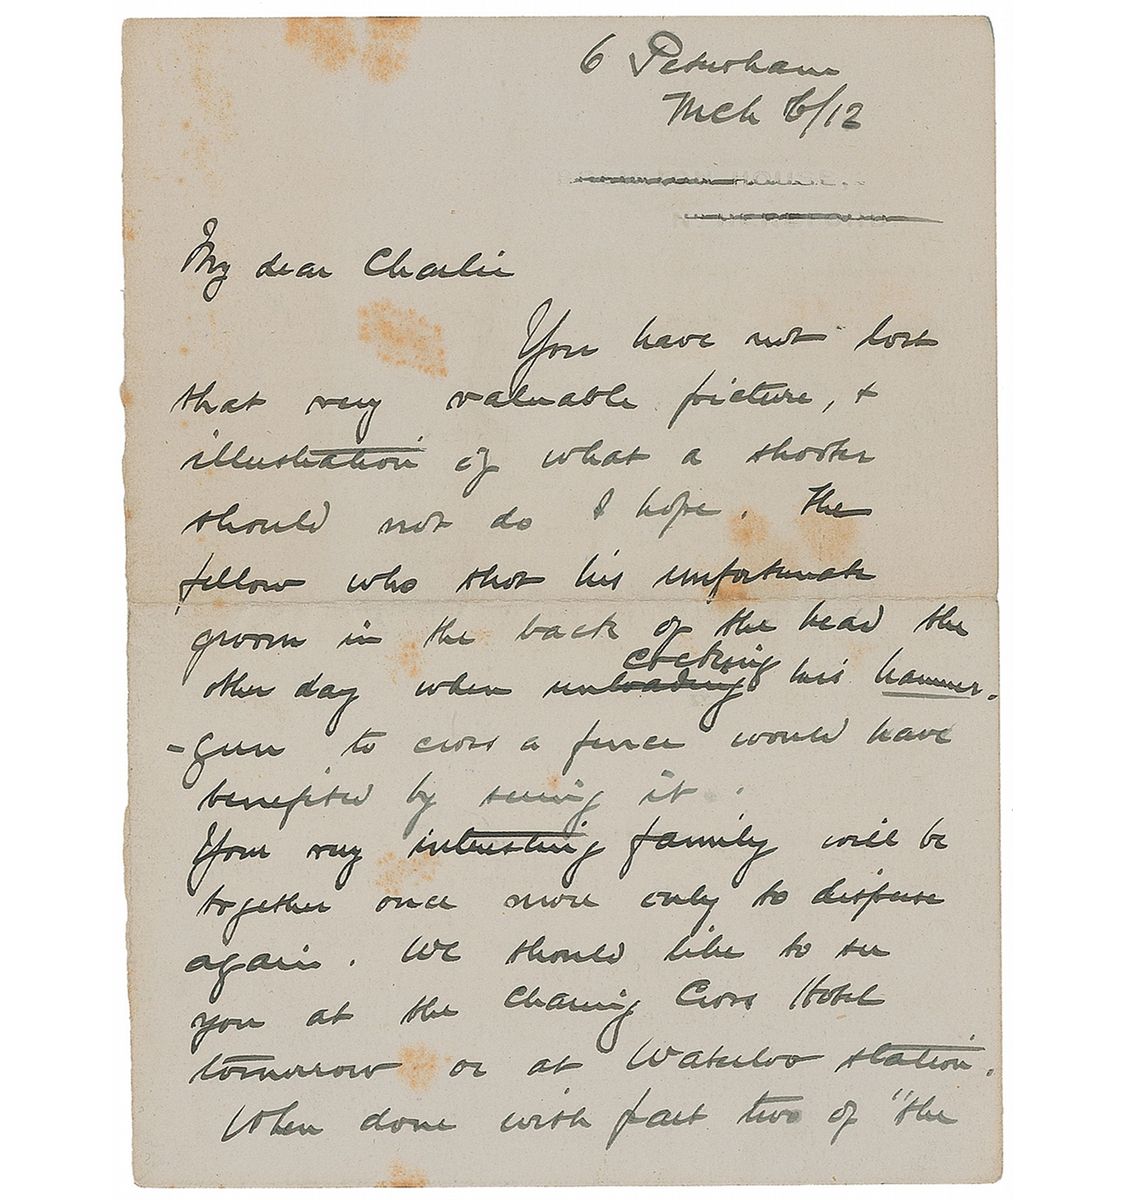 6 Petersham
Mch 6/12
HOUSE,
My dear Charlie
You have not lost
that very valuable picture, &
illustration of what a shooter
should not do I hope. The
fellow who shot his unfortunate
groom in the back of the head the
cocking
other day when unloading his hammer-
-gun to cross a fence would have
benefited by seeing it.
Your very interesting family will be
together once more only to disperse
again. We should like to see
you at the Charing Cross Hotel
tomorrow or at Waterloo station.
When done with part two of "the